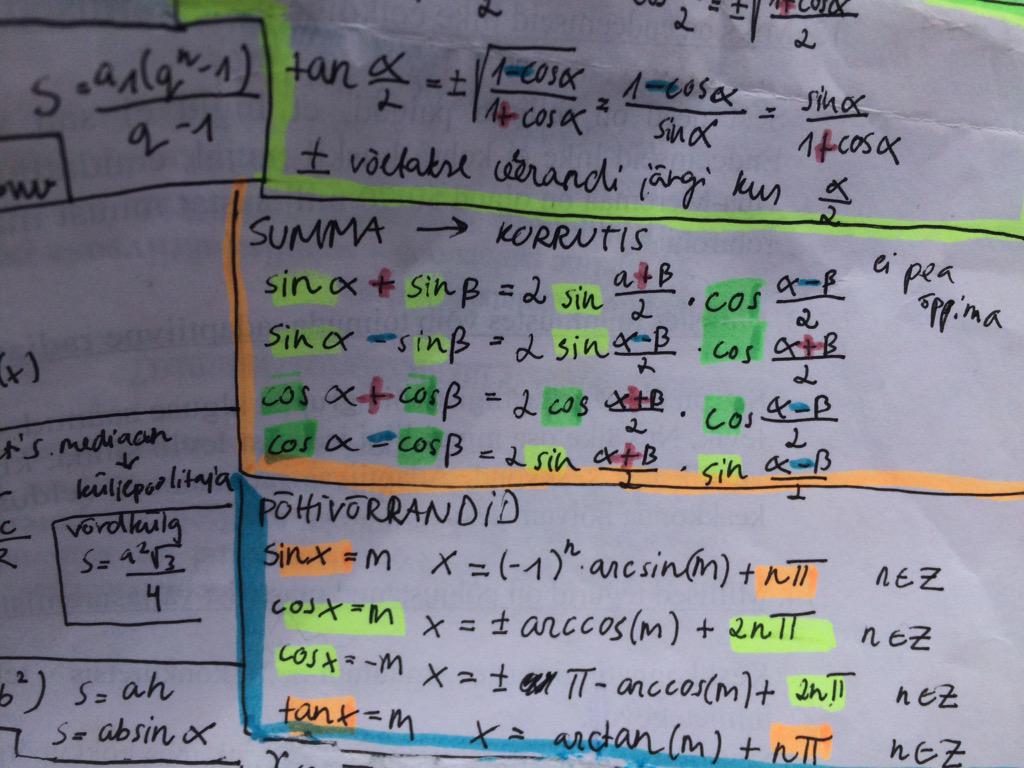 S = a1(qⁿ-1) / q-1
tan α/2 = ±√(1-cosα / 1+cosα) = 1-cosα / sinα = sinα / 1+cosα
± võetakse veerandi järgi kus α/2
SUMMA → KORRUTIS
ei pea õppima
sin α + sin β = 2 sin a+β/2 · cos α-β/2
sin α - sin β = 2 sin α-β/2 · cos α+β/2
cos α + cos β = 2 cos α+β/2 · cos α-β/2
cos α - cos β = 2 sin α+β/2 · sin α-β/2
(x)
mediaan
↓
küljepoolitaja
võrdkülg
S = a²√3 / 4
S = ah
S = absin α
PÕHIVÕRRANDID
sinx = m x = (-1)ⁿ · arcsin(m) + nπ n∈Z
cosx = m x = ± arccos(m) + 2nπ n∈Z
cosx = -m x = ± π - arccos(m) + 2nπ n∈Z
tanx = m x = arctan(m) + nπ n∈Z